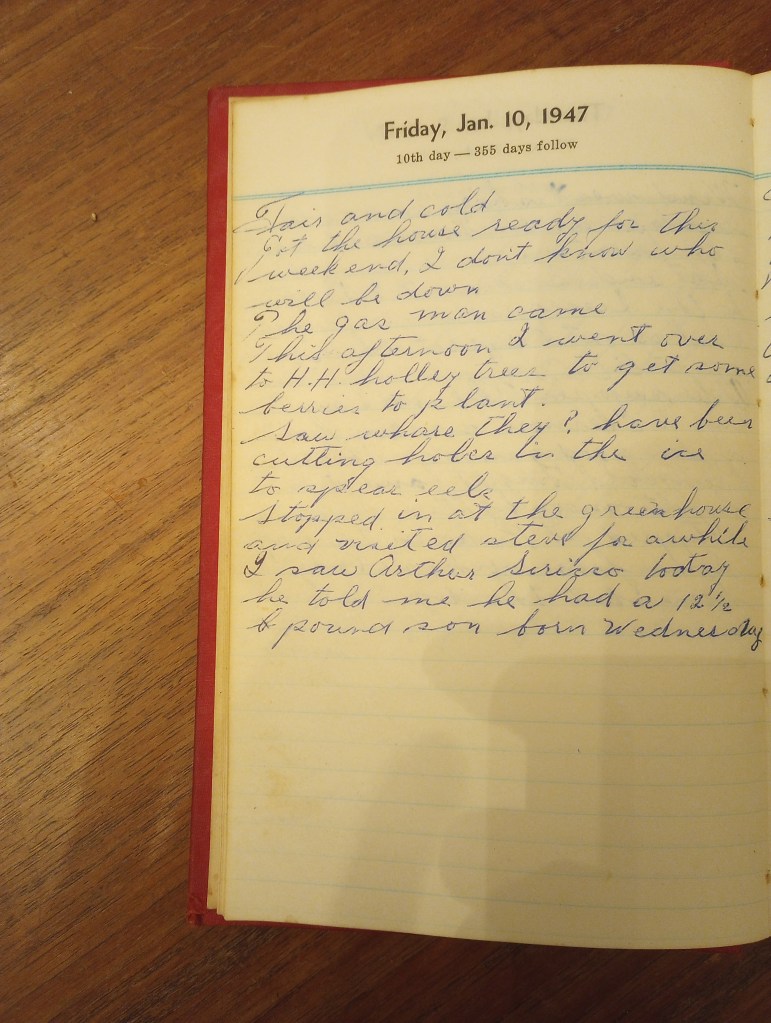 Friday, Jan. 10, 1947
10th day — 355 days follow
Fair and cold
Got the house ready for the
weekend, I don't know who
will be down
The gas man came
This afternoon I went over
to H.H. holley trees to get some
berries to plant.
Saw whare they ? have been
cutting holes in the ice
to spear eels
Stopped in at the greenhouse
and visited steve for awhile
I saw Arthur today
he told me he had a 12 1/2
pound son born Wednesday